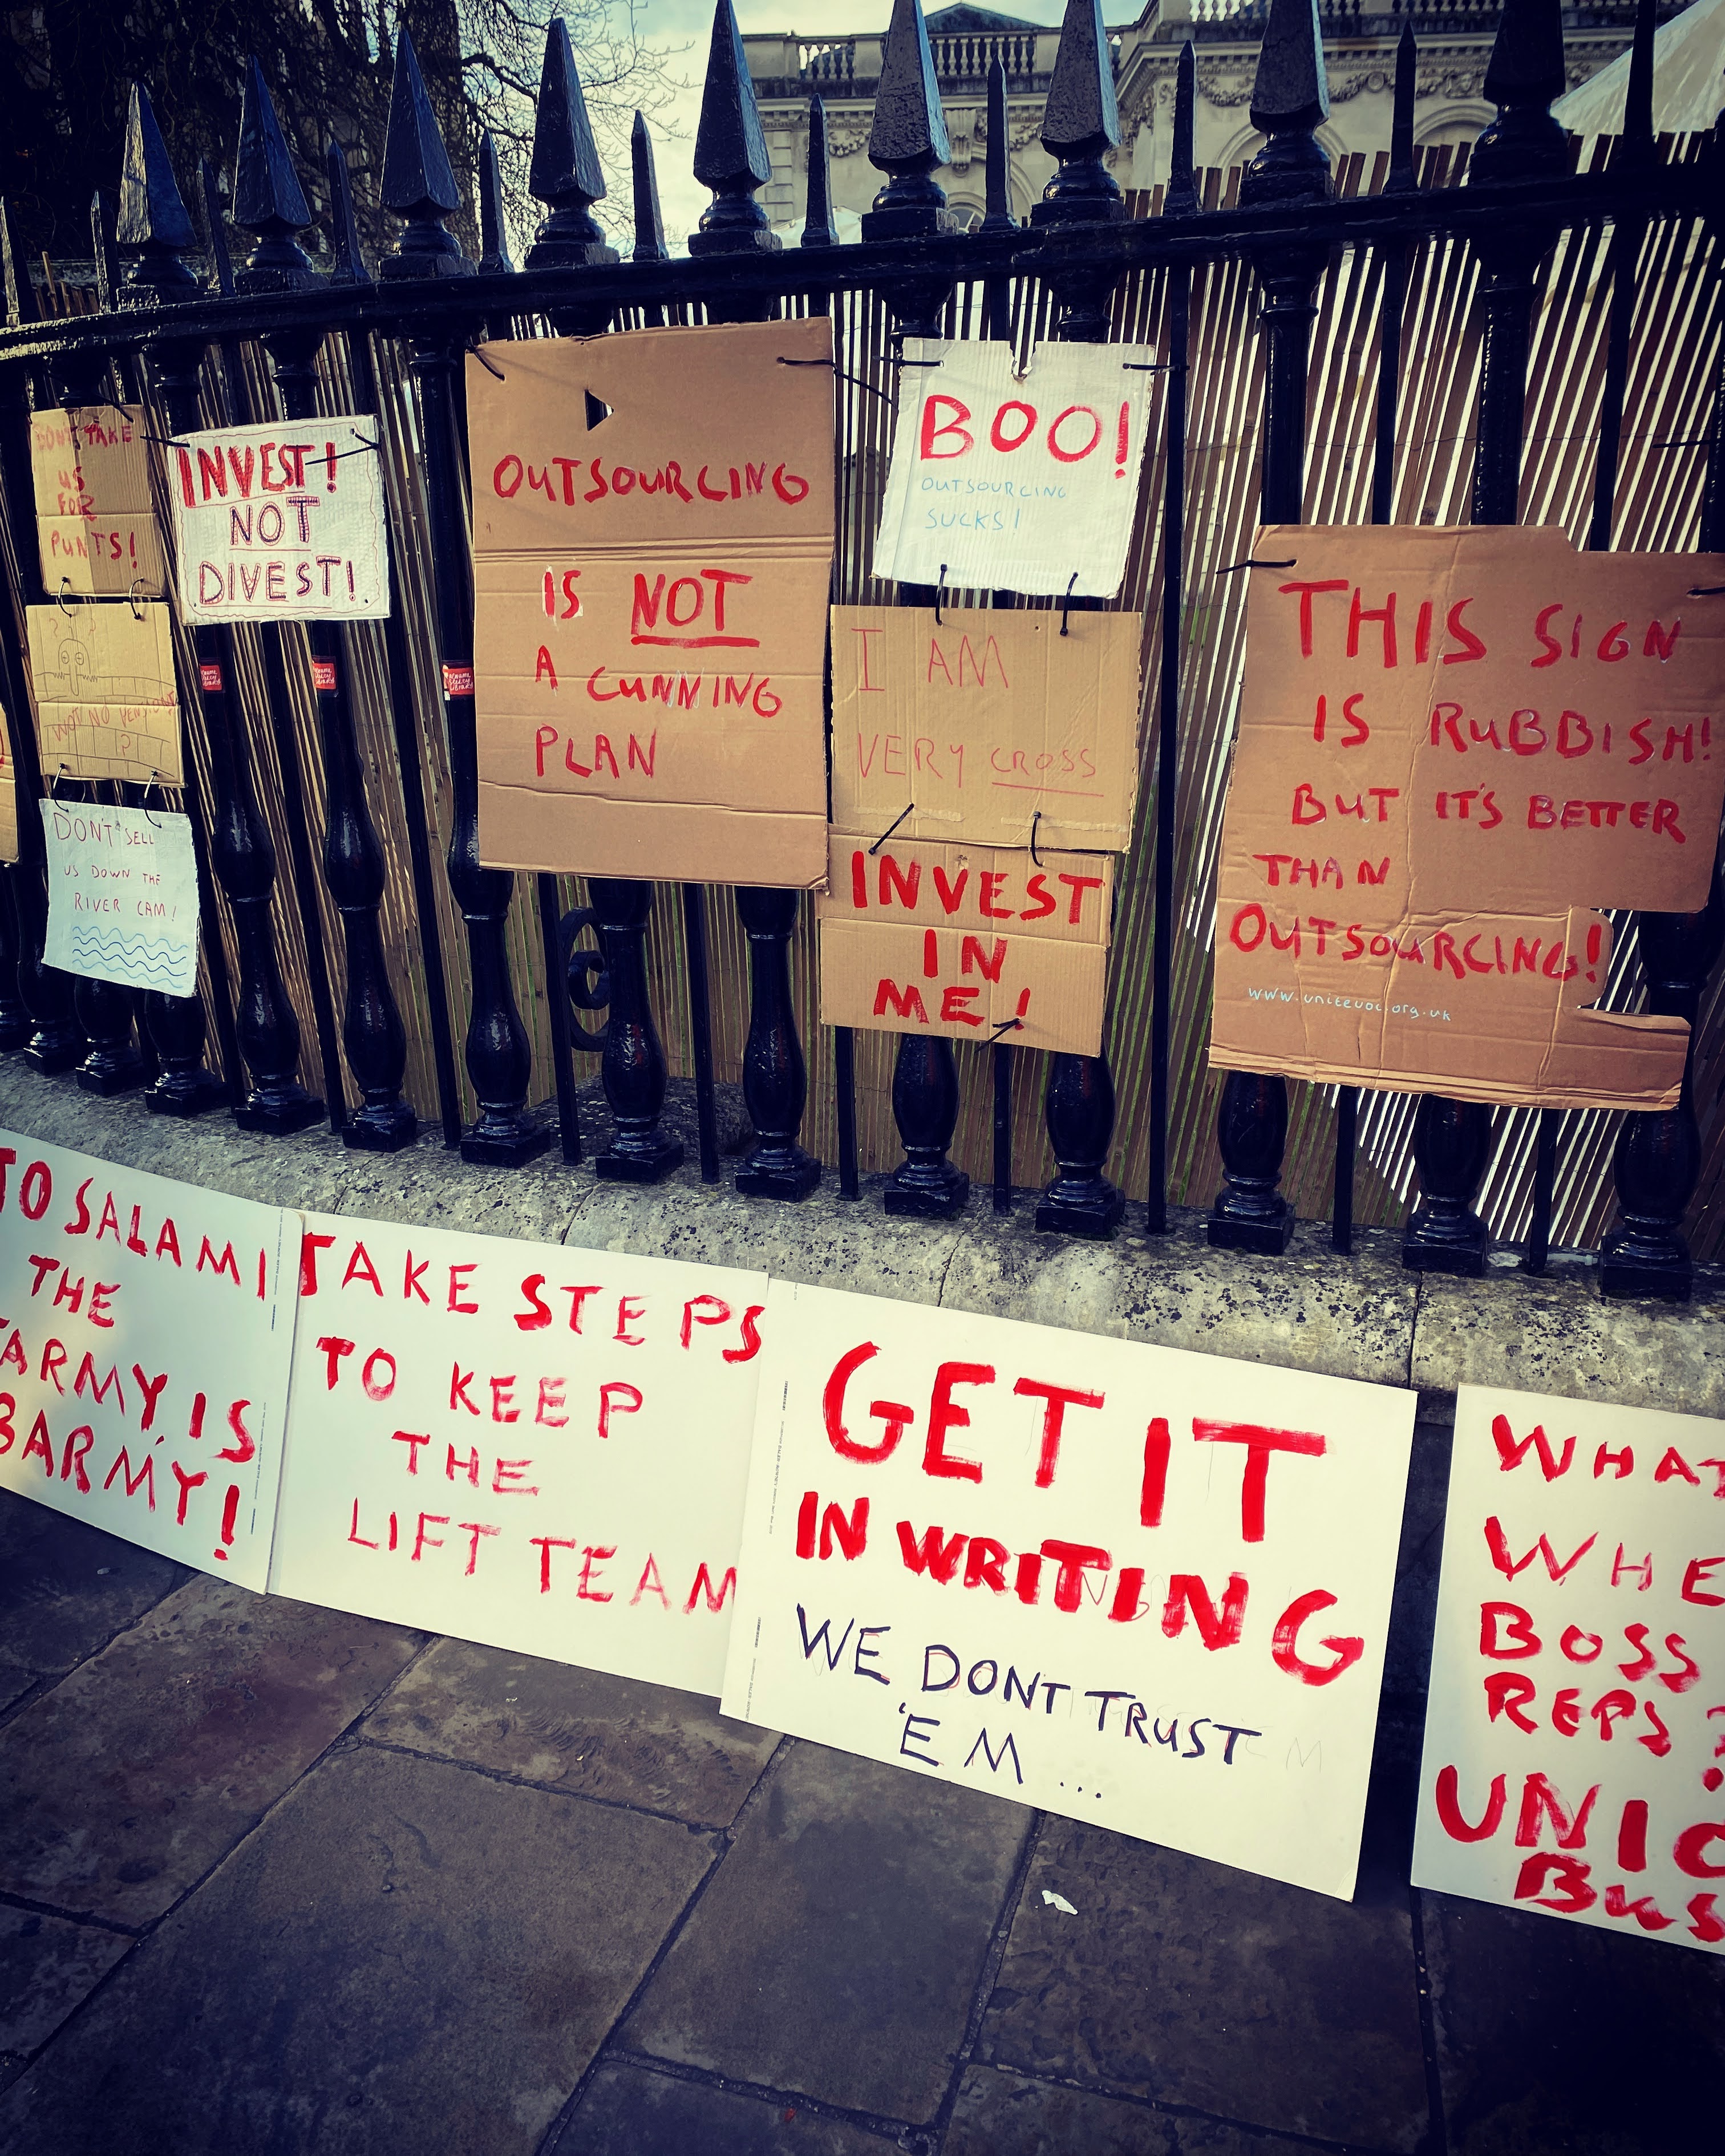 DON'T TAKE
US
FOR
PUNTS!
WOT NO PENSION
?
DON'T SELL
US DOWN THE
RIVER CAM!
INVEST!
NOT
DIVEST!
OUTSOURCING
IS NOT
A CUNNING
PLAN
BOO!
OUTSOURCING
SUCKS!
I AM
VERY CROSS
INVEST
IN
ME!
THIS SIGN
IS RUBBISH!
BUT IT'S BETTER
THAN
OUTSOURCING!
www.uniteuoc.org.uk
TO SALAMI
THE
ARMY, IS
BARMY!
TAKE STEPS
TO KEEP
THE
LIFT TEAM
GET IT
IN WRITING
WE DONT TRUST
'EM...
WHAT
WHE
BOSS
REPS?
UNIO
BUS